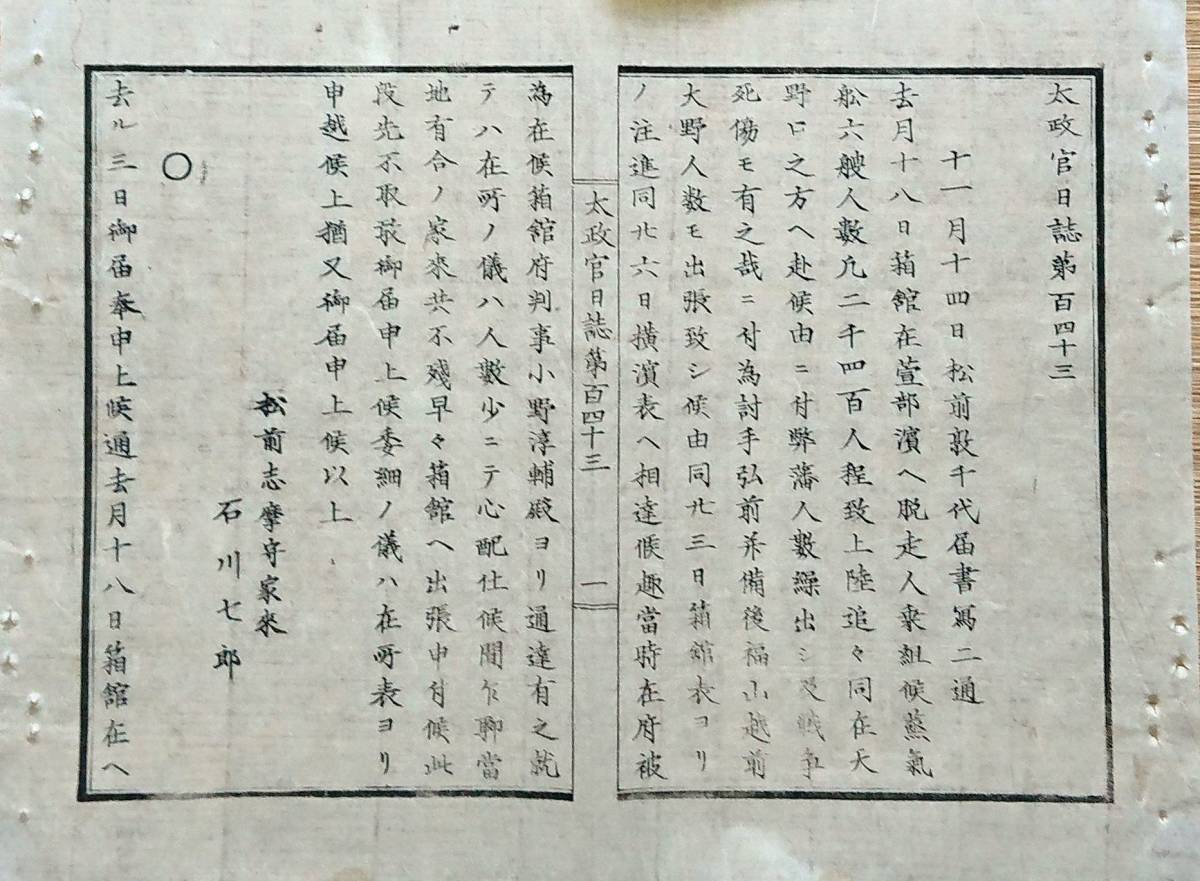 太政官日誌第百四十三
十一月十四日松前敦千代届書寫二通
去月十八日箱館在萱部濱ヘ脱走人乗組候蒸氣
舩六艘人數凡二千四百人程致上陸追々同在大
野口之方ヘ赴候由ニ付弊藩人數繰出シ及戦争
死傷モ有之哉ニ付為討手弘前并備後福山越前
大野人数モ出張致シ候由同廿三日箱館表ヨリ
ノ注進同廿六日横濱表ヘ相達候趣當時在府被
太政官日誌第百四十三 一
為在候箱館府判事小野淳輔殿ヨリ通達有之就
テハ在所ノ儀ハ人數少ニテ心配仕候間乍聊當
地有合ノ家來共不殘早々箱館ヘ出張申付候此
段先不取敢御届申上候委細ノ儀ハ在所表ヨリ
申越候上猶又御届申上候以上
松前志摩守家來
石川七郎
〇
去ル三日御届奉申上候通去月十八日箱館在ヘ